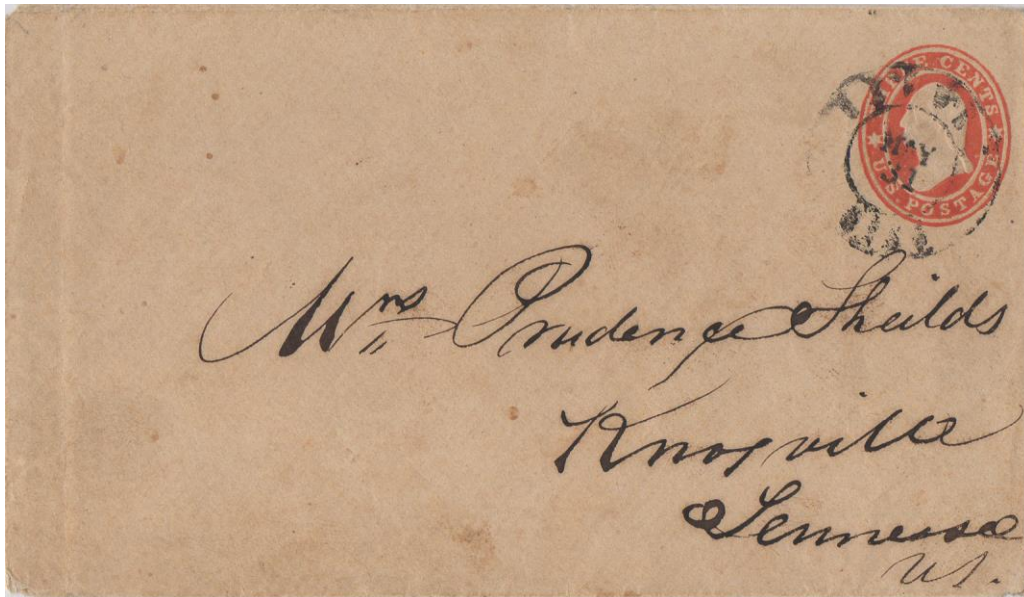 THREE CENTS
MAY
31
U.S. POSTAGE
Mrs Prudence Sheilds
Knoxville
Tennessee